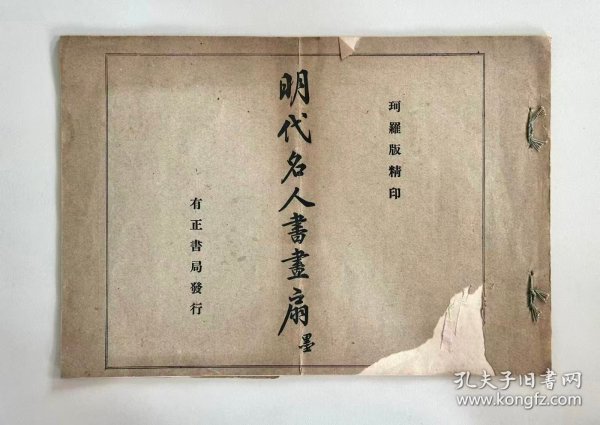 珂羅版精印
明代名人書畫扇
墨
有正書局發行
孔夫子旧書网
www.kongfz.com